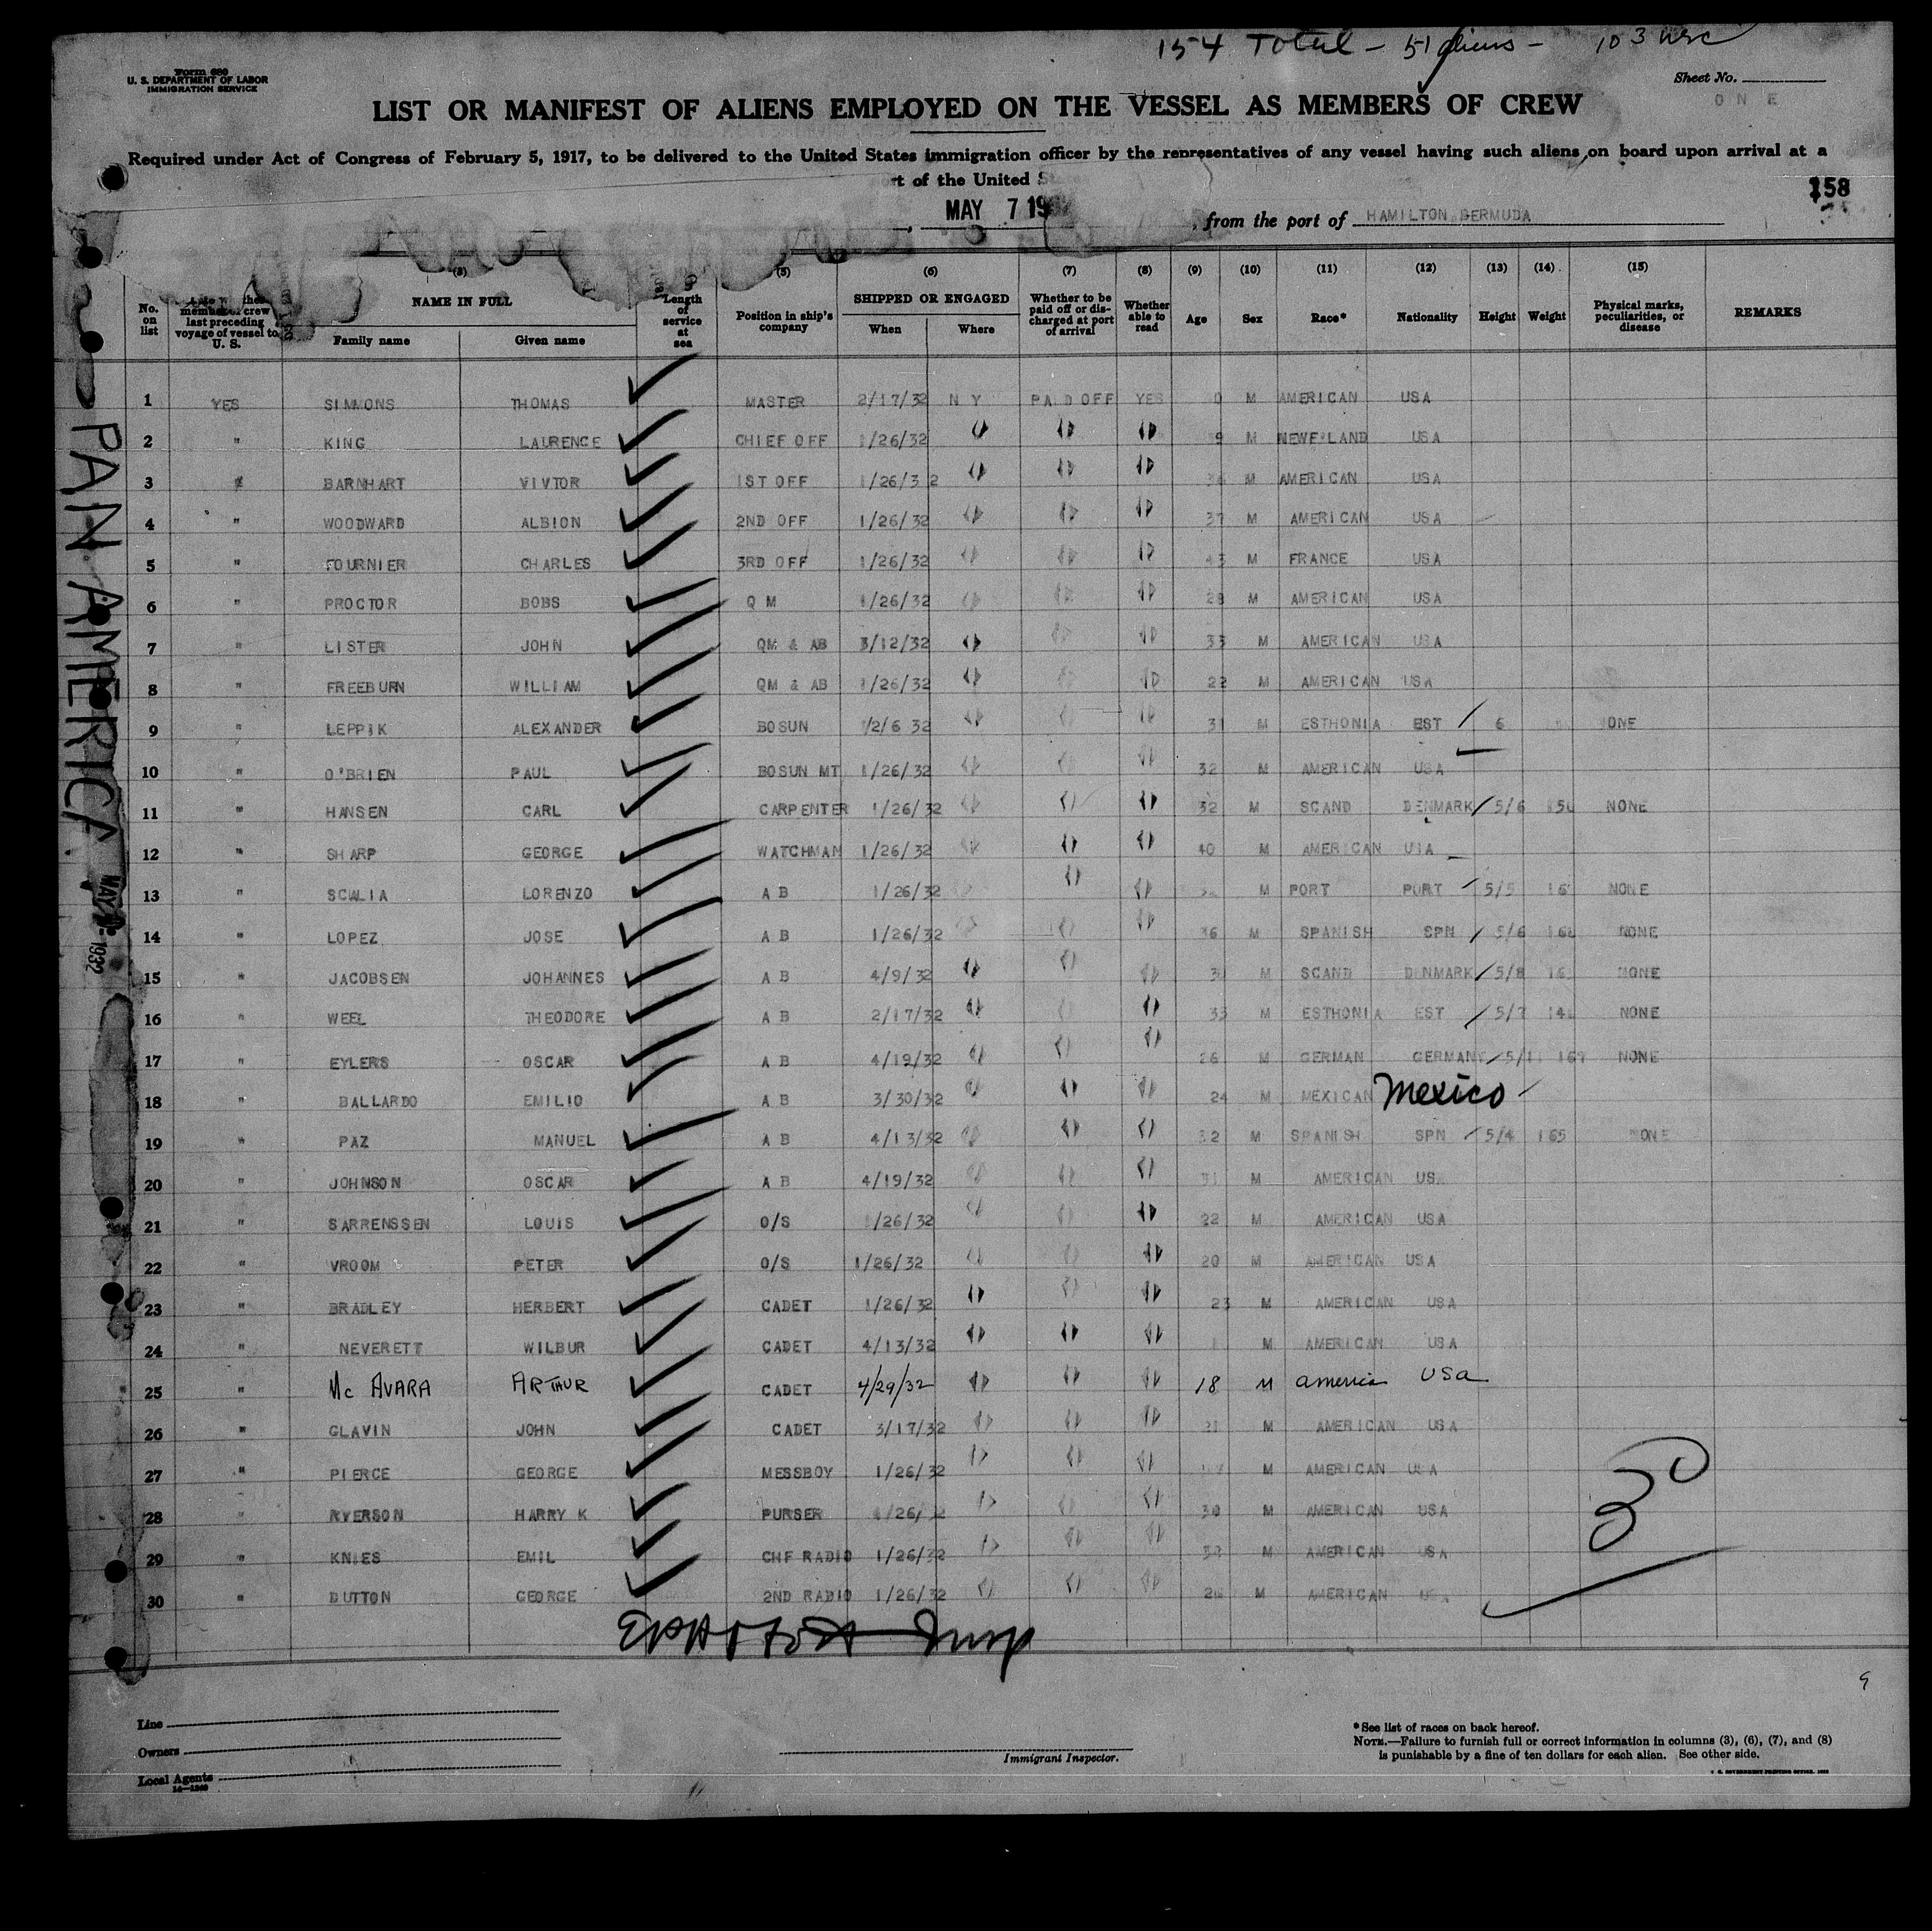 154 Total - 51 aliens - 103 USC
Form 680
U. S. DEPARTMENT OF LABOR
IMMIGRATION SERVICE
Sheet No.
ONE
LIST OR MANIFEST OF ALIENS EMPLOYED ON THE VESSEL AS MEMBERS OF CREW
Required under Act of Congress of February 5, 1917, to be delivered to the United States immigration officer by the representatives of any vessel having such aliens on board upon arrival at a
of the United
158
MAY 7 19 , from the port of HAMILTON BERMUDA
PAN AMERICA
MAY 1932
(3) (5) (6) (7) (8) (9) (10) (11) (12) (13) (14) (15)
No. on list
member of crew last preceding voyage of vessel to U. S.
NAME IN FULL
Family name Given name
Length of service at sea
Position in ship's company
SHIPPED OR ENGAGED
When Where
Whether to be paid off or discharged at port of arrival
Whether able to read
Age Sex Race* Nationality Height Weight
Physical marks, peculiarities, or disease
REMARKS
1 YES SIMMONS THOMAS MASTER 2/17/32 N Y PA D OFF YES M AMERICAN USA
2 " KING LAURENCE CHIEF OFF 1/26/32 " " " M NEWF'LAND USA
3 BARNHART VIVTOR 1ST OFF 1/26/32 " " " M AMERICAN USA
4 " WOODWARD ALBION 2ND OFF 1/26/32 " " " 37 M AMERICAN USA
5 " FOURNIER CHARLES 3RD OFF 1/26/32 " " " 43 M FRANCE USA
6 " PROCTOR BOBS Q M 1/26/32 " " " 28 M AMERICAN USA
7 " LISTER JOHN QM & AB 3/12/32 " " " 33 M AMERICAN USA
8 " FREEBURN WILLIAM QM & AB 1/26/32 " " " 22 M AMERICAN USA
9 " LEPPIK ALEXANDER BOSUN 1/2/6 32 " " " 31 M ESTHONIA EST 6 NONE
10 " O'BRIEN PAUL BOSUN MT 1/26/32 " " 32 M AMERICAN USA
11 " HANSEN CARL CARPENTER 1/26/32 " " " 32 M SCAND DENMARK 5/6 150 NONE
12 " SHARP GEORGE WATCHMAN 1/26/32 " " " 40 M AMERICAN USA
13 " SCALIA LORENZO A B 1/26/32 " " M PORT PORT 5/5 NONE
14 " LOPEZ JOSE A B 1/26/32 " " " 36 M SPANISH SPN 5/6 NONE
15 " JACOBSEN JOHANNES A B 4/9/32 " " " M SCAND DENMARK 5/8 NONE
16 " WEEL THEODORE A B 2/17/32 " " " 33 M ESTHONIA EST 5/7 NONE
17 " EYLERS OSCAR A B 4/19/32 " " " 26 M GERMAN GERMANY 5/11 NONE
18 " BALLARDO EMILIO A B 3/30/32 " " " 24 M MEXICAN Mexico
19 " PAZ MANUEL A B 4/13/32 " " " 32 M SPANISH SPN 5/4 165 NONE
20 " JOHNSON OSCAR A B 4/19/32 " " " 31 M AMERICAN US
21 " SARRENSSEN LOUIS O/S 1/26/32 " " " 22 M AMERICAN USA
22 " VROOM PETER O/S 1/26/32 " " " 20 M AMERICAN USA
23 " BRADLEY HERBERT CADET 1/26/32 " " " 23 M AMERICAN USA
24 " NEVERETT WILBUR CADET 4/13/32 " " " M AMERICAN USA
25 " Mc AVARA ARTHUR CADET 4/29/32 " " " 18 M america USA
26 " GLAVIN JOHN CADET 3/17/32 " " " 21 M AMERICAN USA
27 " PIERCE GEORGE MESSBOY 1/26/32 " " " M AMERICAN USA
28 " RYERSON HARRY K PURSER 1/26/32 " " " 30 M AMERICAN USA
29 " KNIES EMIL CHF RADIO 1/26/32 " " " M AMERICAN USA
30 " DUTTON GEORGE 2ND RADIO 1/26/32 " " " 26 M AMERICAN USA
30
Line
Owners
Local Agents
Immigrant Inspector.
*See list of races on back hereof.
NOTE.—Failure to furnish full or correct information in columns (3), (6), (7), and (8)
is punishable by a fine of ten dollars for each alien. See other side.